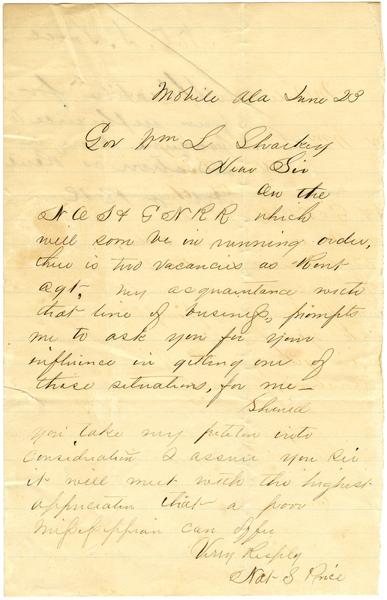 Mobile Ala June 23
Gov Wm L Sharkey
Dear Sir
On the
N O J & G N R R which
will soon be in running order,
there is two vacancies as
agt, My acquaintance with
that line of business, prompts
me to ask you for your
influence in geting one of
those situations, for me—
Should
you take my petition into
consideration I assure you Sir
it will meet with the highest
appreciation that a poor
Mississippian can offer
Very Resply
Nat S Price